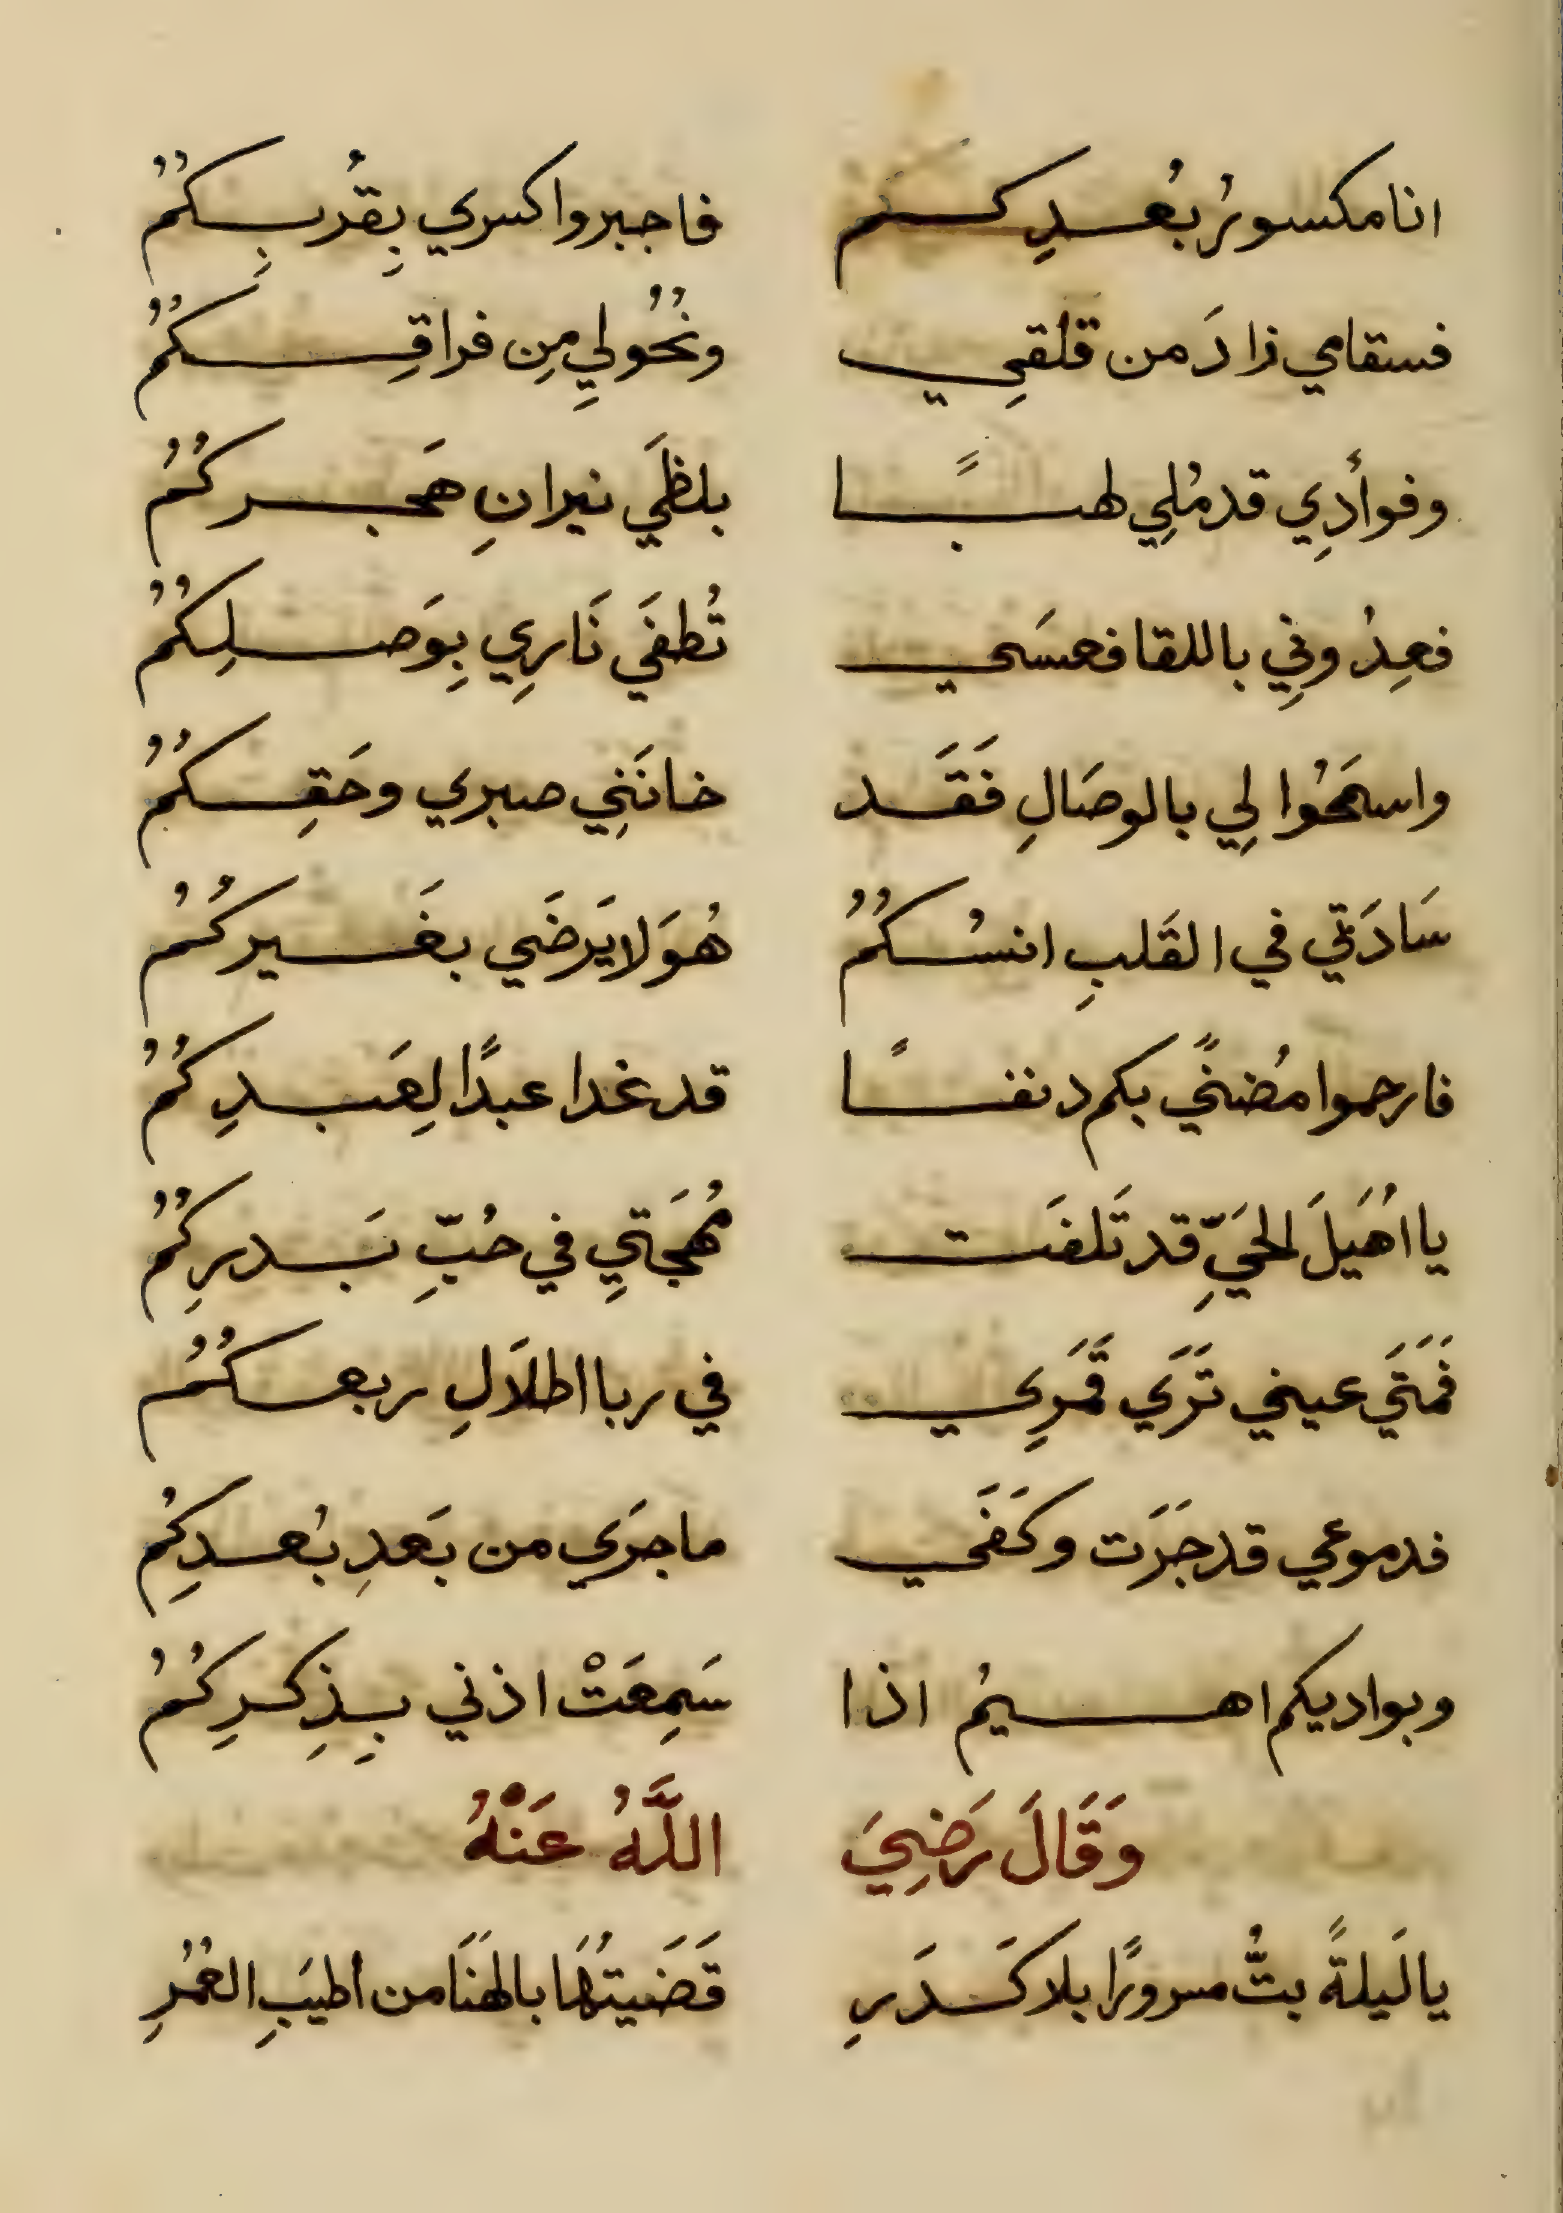 انا مكسورُ بُعدِكم فاجبروا كسري بِقُربِكُمُ
فسقامي زادَ من قلقِي ونُحُولِي مِن فراقِكُمُ
وفوأدِي قد مُلِي لهبًا بلظَي نيرانِ هَجركُمُ
فعِدُونِي باللقا فعسَي تُطفَي نَارِي بِوَصلِكُمُ
واسمَحُوا لِي بالوصَالِ فَقَد خانَنِي صبري وحَقِكُمُ
سَادَتِي في القَلبِ انسُكُمُ هُوَ لا يَرضَي بغَيركُمُ
فارحموا مُضنًي بكم دنفًا قد غدا عبدًا لِعَبدِكُمُ
يا اُهَيلَ الحَيِّ قد تَلفَت مُهجَتِي في حُبِّ بَدرِكُمُ
فَمَتَي عيني تَرَي قَمَرِي في ربا اطلاَلِ ربعكُمُ
فدموعي قد جَرَت وكَفَي ما جرَي من بَعدِ بُعدِكِمُ
وبواديكم اهيمُ اذا سَمِعَتْ اذني بِذِكرِكُمُ
وَقَالَ رَضِيَ اللَّهُ عَنْهُ
يا لَيلةً بتُّ مسرورًا بلا كَدَرِ قَضَيتُهَا بالهَنَا من اطيَبِ العُمُرِ